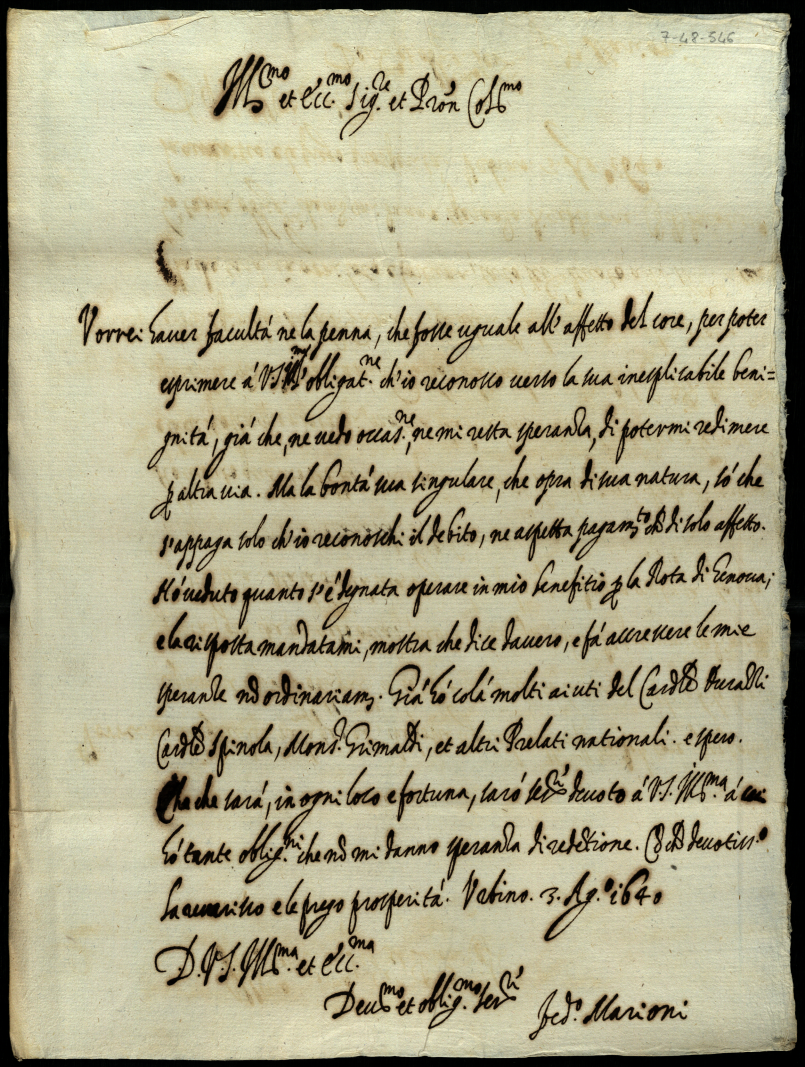 7-48-546
Ill.mo et Ecc.mo Sig.re et Pron Col.mo
Vorrei hauer facultá ne la penna, che fosse uguale all'affetto del core, per poter
esprimere á V.S. Ill.ma l'obligat.ne ch'io reconosco uerso la sua inesplicabile beni=
gnitá, giá che, ne uedo occas.ne, ne mi resta speranza, di potermi redimere
p altra uia. Ma la bontá sua singulare, che opra di sua natura, só che
s'appaga solo ch'io reconoschi il debito, ne aspetta pagam.to che di solo affetto.
Hó ueduto quanto s'é degnata operare in mio benefitio p la Rota di Genoua;
e la risposta mandatami, mostra che dice dauero, e fá accrescere le mie
speranze nō ordinariam. Giá hó colá molti aiuti del Cardle Durazzi
Cardle Spinola, Mons. Grimaldi, et altri Prelati nationali. e spero.
Che che sará, in ogni loco e fortuna, saró ser.ri deuoto á V.S. Ill.ma á cui
hó tante oblig.ni che nō mi danno speranza di redētione. E che deuotiss.o
la reuerisco e le prego prosperitá. Vrbino. 3. Ag.o 1640
D. V.S. Ill.ma et Ecc.ma
Deu.mo et oblig.mo Ser.ri
Fed.o Marioni